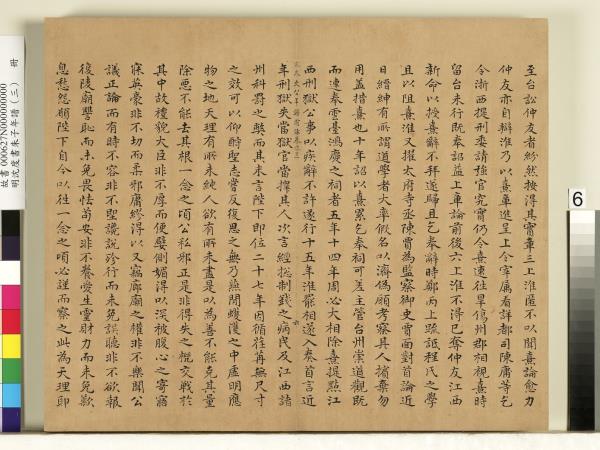 至台訟仲友者紛然按得其實章三上淮匿不以聞熹論愈力
仲友亦自辯淮乃以熹章進呈上令宰属看詳都司陳庸等乞
令浙西提刑委請強官究實仍令熹速往旱傷州郡相視熹時
留台未行既奉詔益上章論前後六上淮不得已奪仲友江西
新命以授熹辭不拜遂歸且乞奉辭時鄭丙上疏詆程氏之學
且以阻熹淮又擢太府寺丞陳賈為監察御史賈面對首論近
日縉紳有所謂道學者大率假名以濟偽願考察其人擯棄勿
用蓋指熹也十年詔以熹累乞奉祠可差主管台州崇道觀既
而連奉雲臺鴻慶之祠者五年十四年周必大相除熹提點江
西刑獄公事以疾辭不許遂行十五年淮罷相遂入奏首言近
年刑獄失當獄官當擇其人次言經總制錢之病民及江西諸
州科罰之弊而其末言陛下即位二十七年因循荏苒無尺寸
之效可以仰酬聖志嘗反復思之無乃燕閒蠖濩之中虛明應
物之地天理有所未純人欲有所未盡是以為善不能充其量
除惡不能去其根一念之頃公私邪正是非得失之機交戰於
其中故禮貌大臣非不厚而便嬖側媚得以深被腹心之寄寤
寐英豪非不切而柔邪庸繆得以又竊廊廟之權非不樂聞公
議正論而有時不容非不聖讒說殄行而未免誤聽非不欲報
復陵廟讐恥而未免畏怯苟安非不養愛生靈財力而未免歎
息愁怨願陛下自今以往一念之頃必謹而察之此為天理耶
故書000627N000000000
明沈度書朱子年譜（三） 冊
6